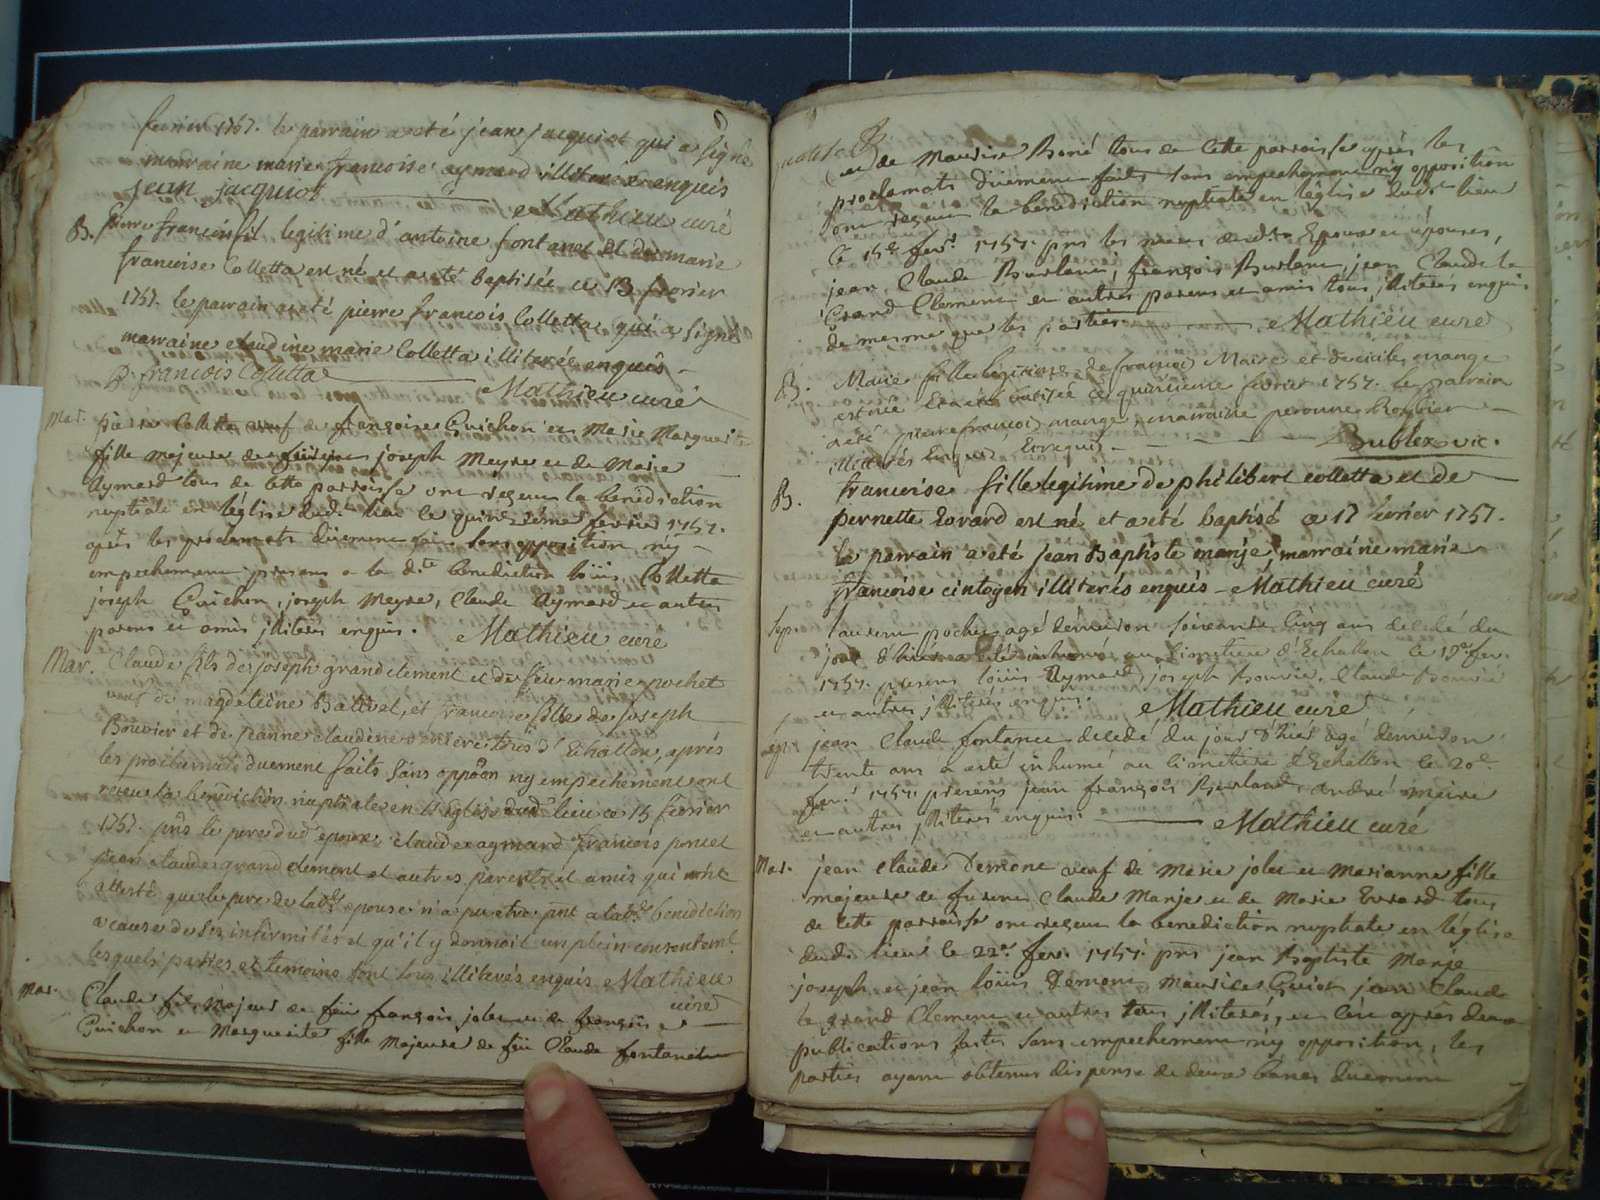 fevrier 1757. le parrain a eté jean jacquiot qui a signé
marraine marie francoise aymard illiterée enquis
jean jacquiot Mathieu curé
B. pierre francoi fil legitime d'antoine fontanel et de marie
francoise Colletta est né et a eté baptisée ce 13 fevrier
1757. le parrain a eté pierre francois Colletta qui a signé
marraine claudine marie Colletta illiterée enquis
p. françois Colletta Mathieu curé
Mar. pierre Colletta veuf de françoise Guichon et Marie Marguerite
fille majeure de joseph Meyre et de Marie
Aymard tous de cette parroisse ont reçeu la bénédiction
nuptiale en l'église dudt lieu le quinzième fevrier 1757.
après les proclamats duement faits sans opposition n'y
empechement presens a la d.te benediction loüis Colletta
joseph Guichon, joseph Meyre, Claude Aymard et autres
parens et amis illiterés enquis. Mathieu curé
Mar. Claude fils de joseph grandclement et de feu marie pochet
veuf de magdeleine Ballivet, et francoise fille de Joseph
Bouvier et de jeanne claudine tous d'Echallon, après
les proclamats duement faits sans oppoon ny empechement ont
receu la benediction nuptiale en l'eglise dudt lieu ce 15 fevrier
1757. pns le pere dud epoux, claude aymard francois poncet
jean claude grand clement et autres parents et amis qui ont
attesté que le pere de ladt epouse n'a pu etre pnt a ladt benediction
a cause de ses infirmités et qu'il y donnoit un plein consentemt
lesquels parties et temoins sont tous illiterés enquis Mathieu
curé
Mar. Claude fils Majeur de feu françois jolet et de françoise
Guichon et Marguerite fille Majeure de feü Claude fontanel
et de Maurise Boné tous de cette parroisse après les
proclamats duement faits sans empechement n'y opposition
ont reçeu la benediction nuptiale en l'église dudt lieu
le 15e fevr. 1757. pns les peres desdts Epoux et épouse,
jean Claude Burlanc, françois Burlanc jean Claude le
Grand Clement et autres parens et amis tous illiterés enquis
de mesme que les parties Mathieu curé
B. Marie fille legitime de françois Maire et de cécile mange
est née et a été batisée ce quinzieme fevrier 1757. le parrain
a été pierre françois mange, marraine peronne
illiterés enquis Bublex vic.
B. francoise fille legitime de philibert colletta et de
pernette Evrard est né et a eté baptisé ce 17 fevrier 1757.
le parrain a eté jean Baptiste manje, marraine marie
francoise cintoyen illiterés enquis Mathieu curé
Sep. laurent pochet agé denviron soixante cinq ans decedé du
jour d'hier a été inhumé au Cimetiere d'Echallon le 19e fev.
1757. presens loüis Aymard, joseph Bouvié, Claude Bouvié
et autres illiterés enquis. Mathieu curé
sep. jean Claude fontanel decedé du jour d'hier agé denviron
trente ans a eté inhumé au cimetiere d'Echallon le 20e.
fevr. 1757. presens jean françois Burland, andré Maire
et autres illiterés enquis. Mathieu curé
Mar. jean claude Demone veuf de Marie jolet et Marianne fille
majeure de Claude Manje et de Marie Evrard tous
de cette parroisse ont reçeu la benediction nuptiale en l'église
dud. lieu le 22e. fev. 1757. pns jean Baptiste Manje
joseph et jean loüis Demone Maurice Guiot jean Claude
le grand Clement et autres tous illiterés, et ce après deux
publications faites sans empechement n'y opposition, les
parties ayant obtenus dispense de deux bancs duement